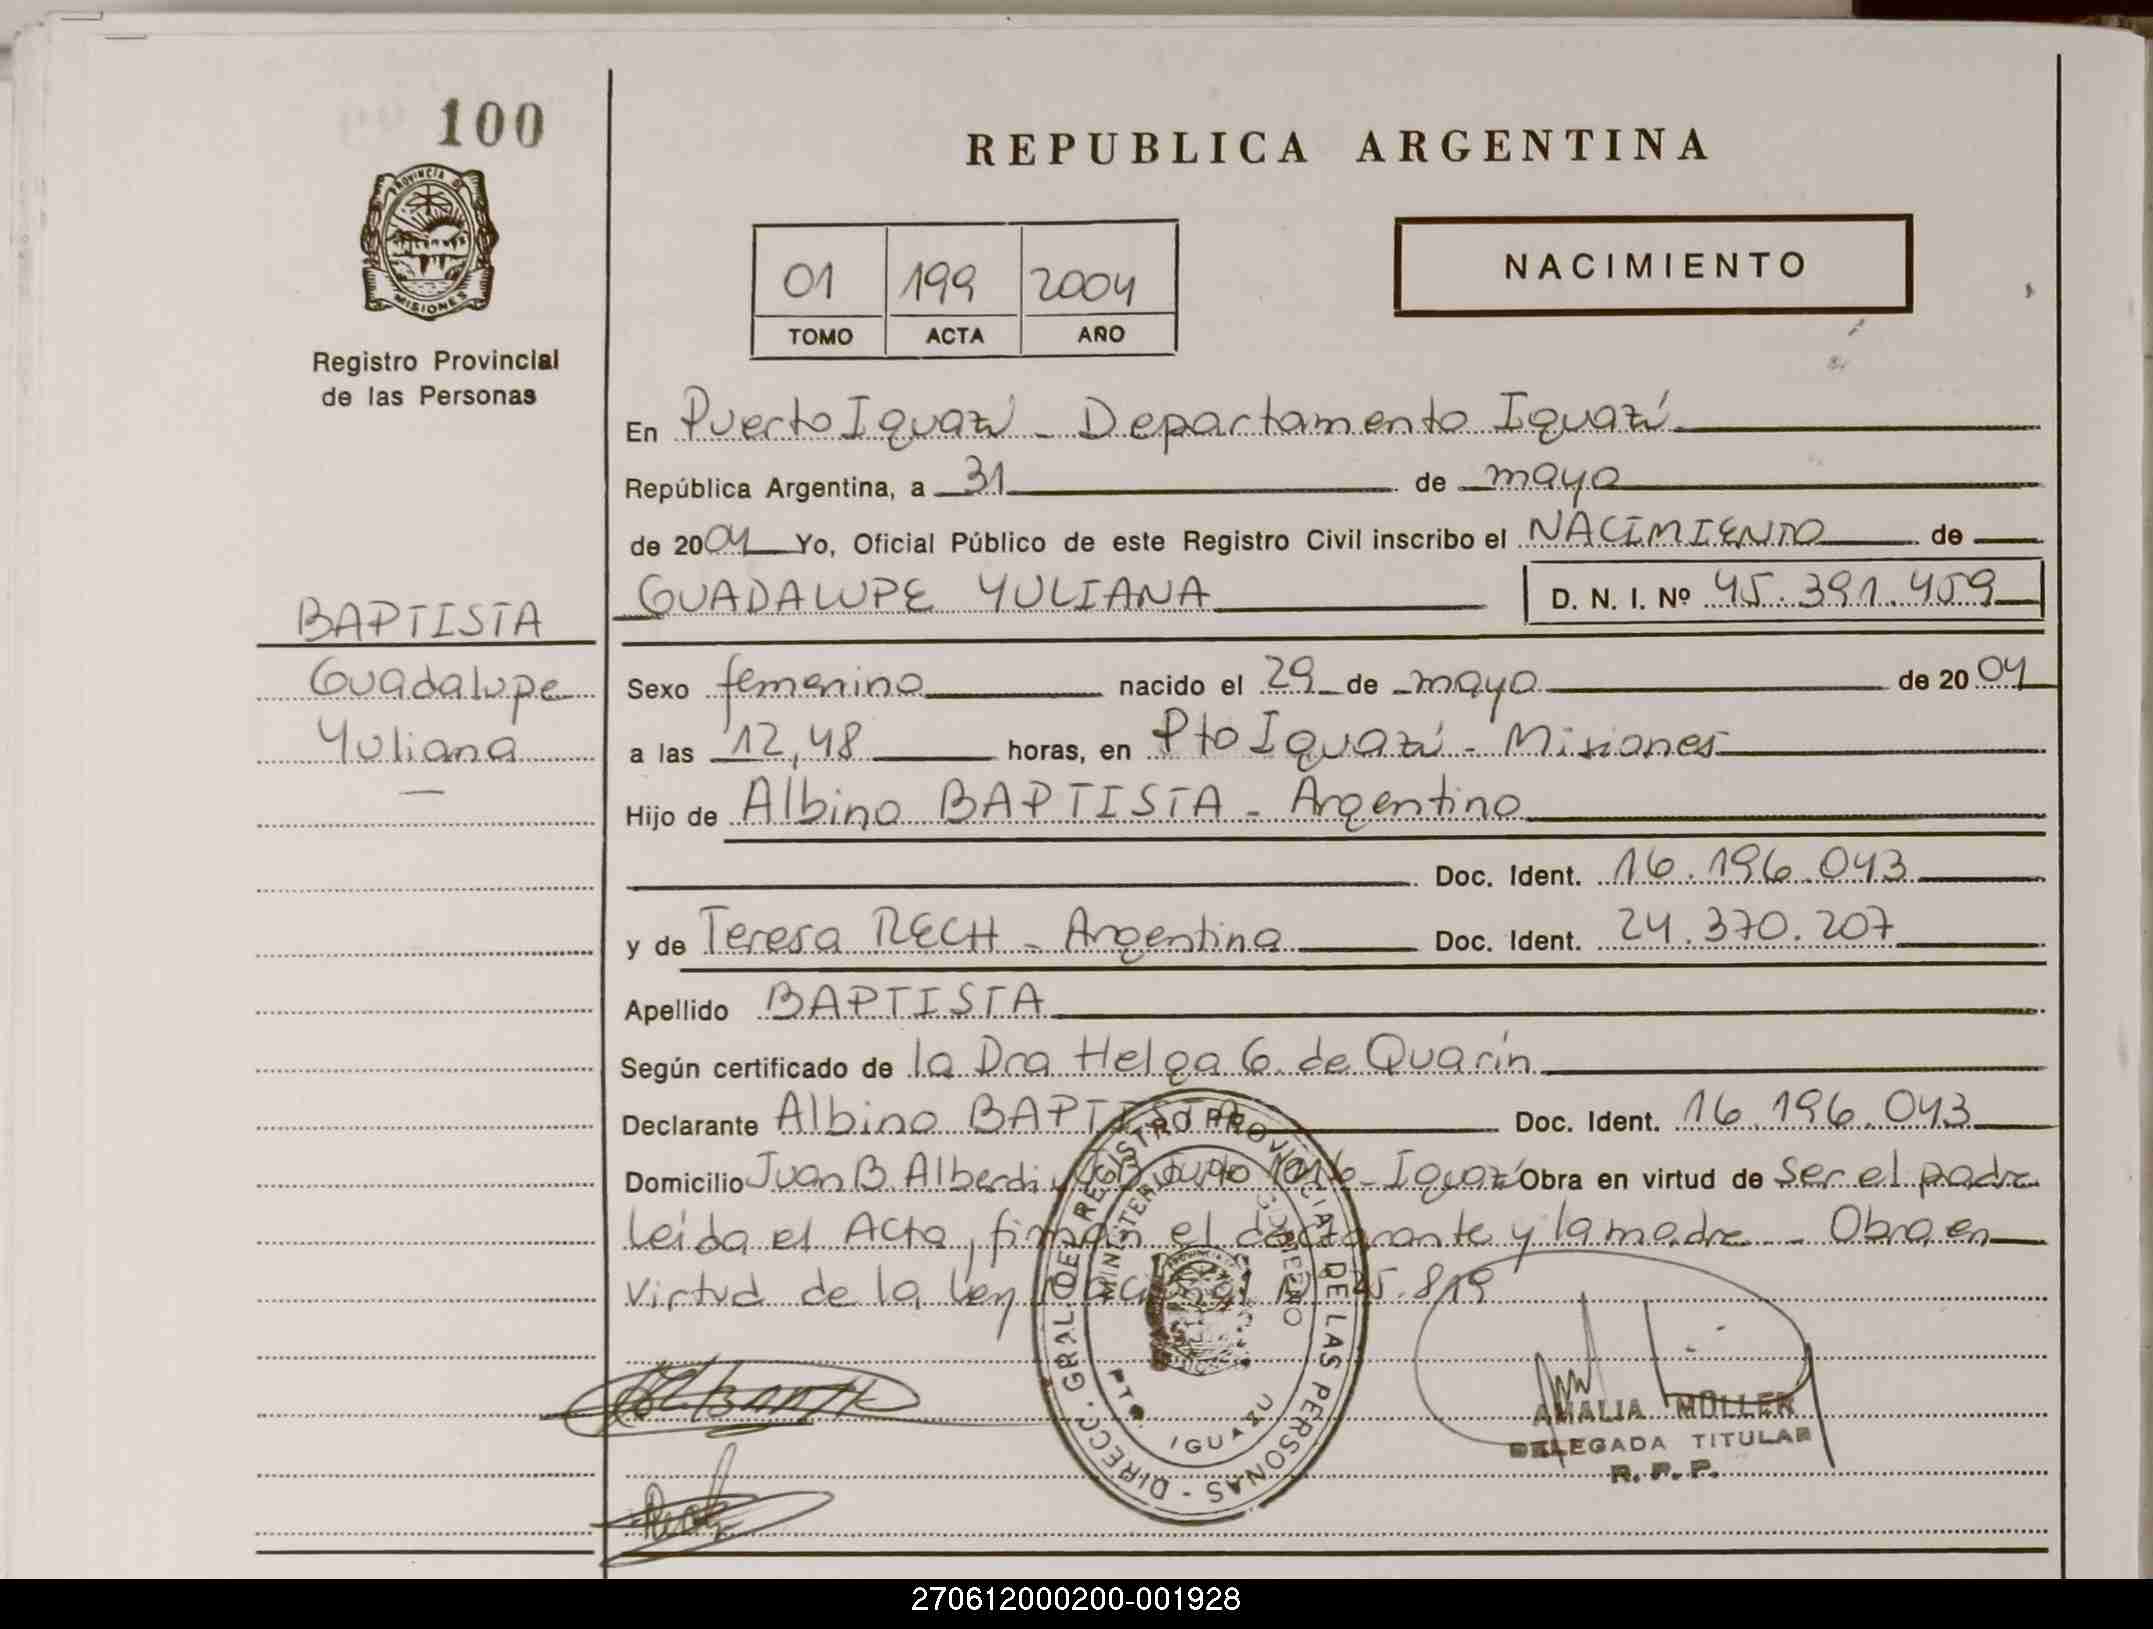 100
PROVINCIA DE
MISIONES
Registro Provincial
de las Personas
BAPTISTA
Guadalupe
Yuliana
REPUBLICA ARGENTINA
01 199 2004
TOMO ACTA AÑO
NACIMIENTO
En Puerto Iguazú - Departamento Iguazú
República Argentina, a 31 de mayo
de 2004 Yo, Oficial Público de este Registro Civil inscribo el NACIMIENTO de
GUADALUPE YULIANA D. N. I. Nº 45.391.459
Sexo femenino nacido el 29 de mayo de 2004
a las 12,48 horas, en Pto Iguazú - Misiones
Hijo de Albino BAPTISTA - Argentino
Doc. Ident. 16.196.043
y de Teresa RECH - Argentina Doc. Ident. 24.370.207
Apellido BAPTISTA
Según certificado de la Dra Helga G. de Quarín
Declarante Albino BAPTISTA Doc. Ident. 16.196.043
Domicilio Juan B. Alberdi Iguazú Obra en virtud de Ser el padre
Leida el Acta, firman el declarante y la madre - Obra en
virtud de la Ley Nacional Nº 25.819
DIRECC. GRAL DEL REGISTRO PROVINCIAL DE LAS PERSONAS -
MINISTERIO GOBIERNO
PTO. IGUAZU
AMALIA MÖLLER
DELEGADA TITULAR
R. P. P.
270612000200-001928